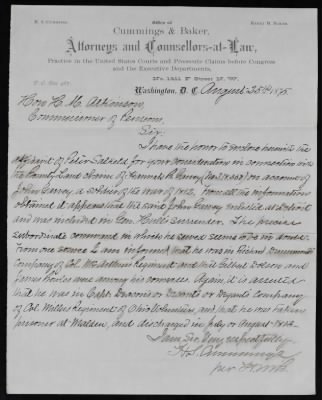 Office of
H. S. Cummings.
Henry M. Baker.
Cummings & Baker,
Attorneys and Counsellors-at-Law,
Practice in the United States Courts and Prosecute Claims before Congress
and the Executive Departments,
Washington, D. C. August 25th 1875
Hon H. M. Atkinson,
Commissioner of Pensions,
Sir:
I have the honor to enclose herewith the
affidavit of Peter for your consideration in connection with
the Bounty Land Claim of on account of
John a soldier of the war of 1812. From all the information
obtained it appears that the said John enlisted at Detroit
and was included in Gen Hull's surrender. The precise
subordinate command in which he served seems to be in doubt.
From one source I am informed that he was in Richard
Company of Col. McArthur's Regiment and that
James were among his comrades. Again, it is asserted
that he was in Capt. or or Company
of Col. Regiment of Ohio Volunteers, and that he was taken
prisoner at Malden, and discharged in July or August
I am Sir Very respectfully,
H. S. Cummings
per